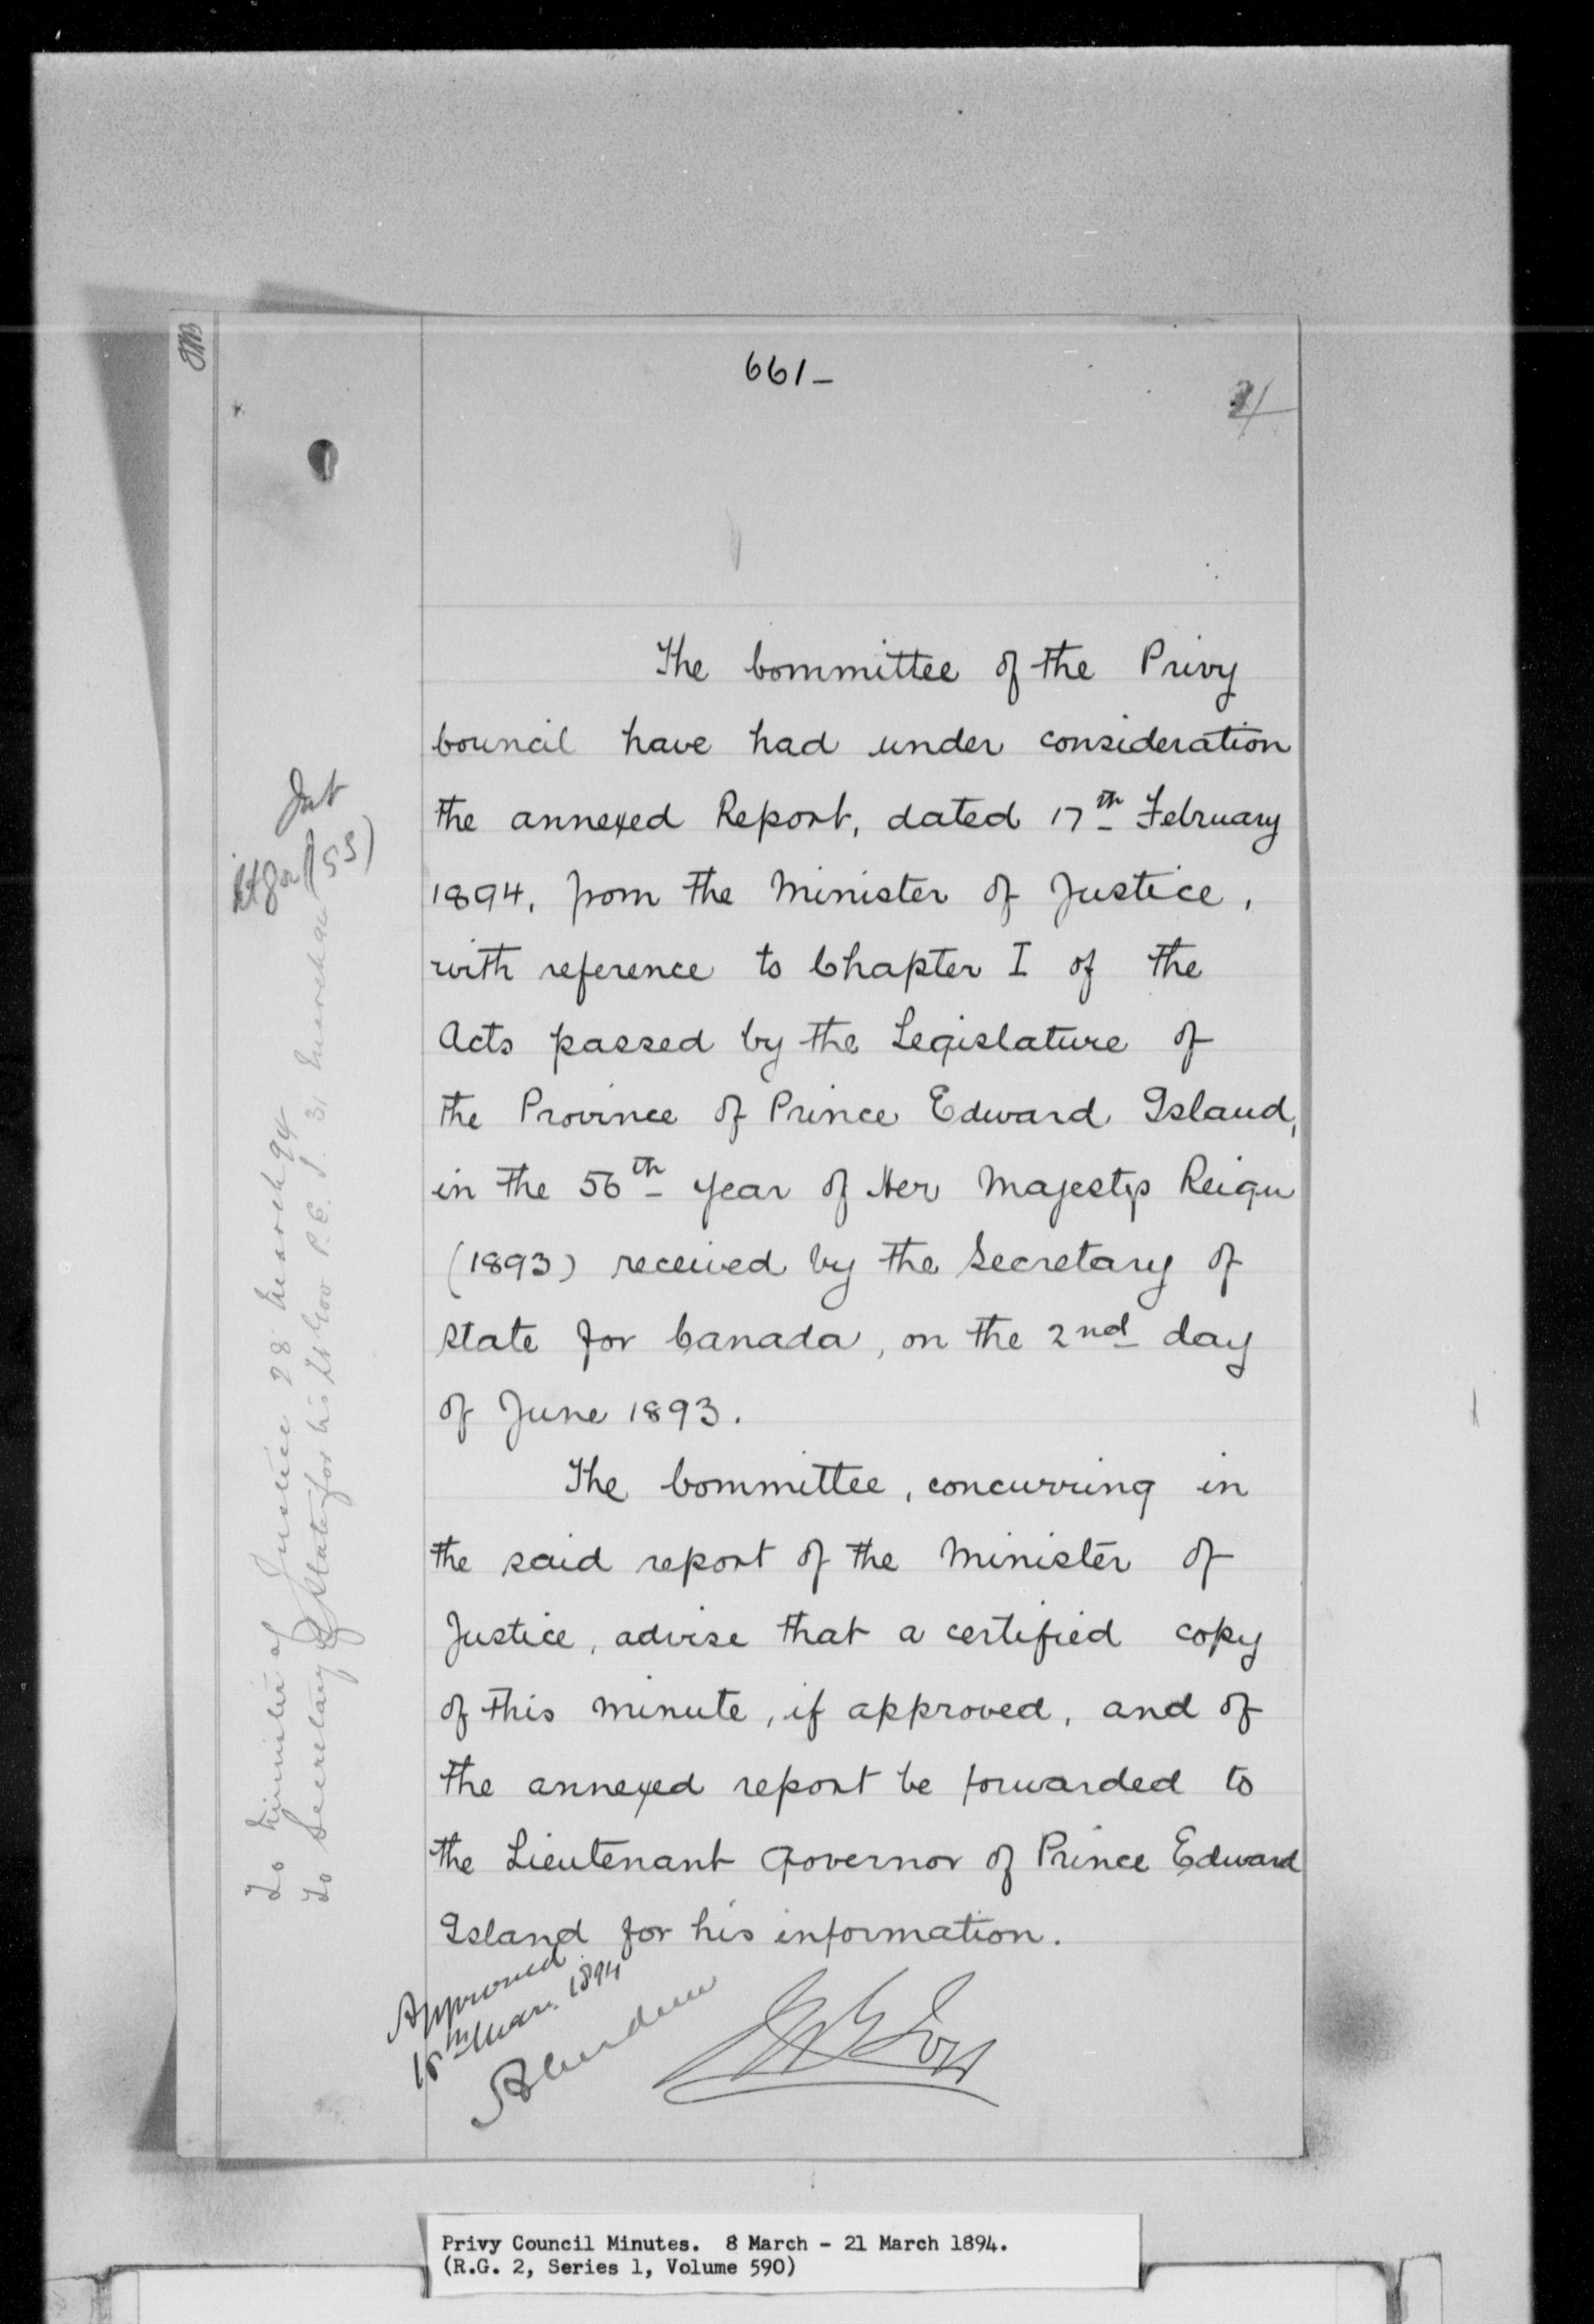 661-
The Committee of the Privy
Council have had under consideration
the annexed Report, dated 17th February
1894, from the Minister of Justice,
with reference to Chapter I of the
Acts passed by the Legislature of
the Province of Prince Edward Island,
in the 56th year of Her Majestys Reign
(1893) received by the Secretary of
State for Canada, on the 2nd day
of June 1893.
The Committee, concurring in
the said report of the Minister of
Justice, advise that a certified copy
of this minute, if approved, and of
the annexed report be forwarded to
the Lieutenant Governor of Prince Edward
Island for his information.
Approved
Mar. 1894
Aberdeen
To Minister of Justice 28 March 94
To Secretary of State for his Lt Gov P.E.I. 31 March
Privy Council Minutes. 8 March - 21 March 1894.
(R.G. 2, Series 1, Volume 590)